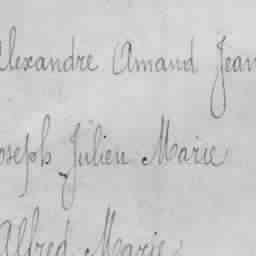 Alexandre Amand Jean
Joseph Julien Marie
Alfred Marie